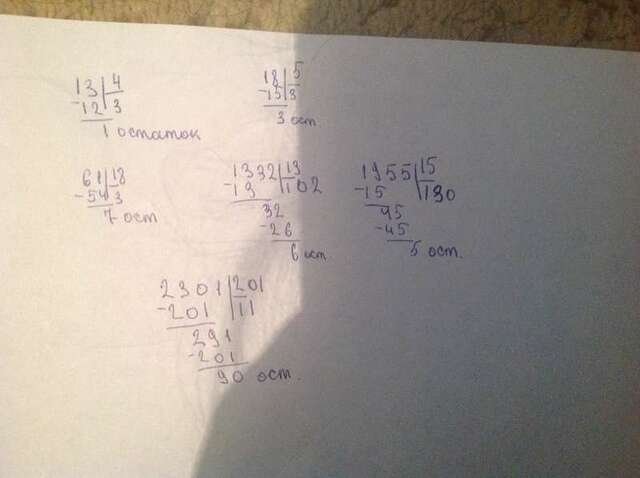 13|4
-12|3
1 остаток
18|5
-15|3
3 ост.
61|18
-54|3
7 ост
1332|13
-13|102
32
-26
6 ост
1955|15
-15|130
45
-45
5 ост.
2301|201
-201|11
291
-201
90 ост.